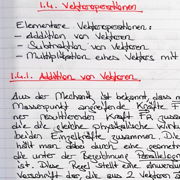 1.4. Vektoroperationen
Elementare Vektoroperationen:
- Addition von Vektoren
- Subtraktion von Vektoren
- Multiplikation eines Vektors mit
1.4.1. Addition von Vektoren
Aus der Mechanik ist bekannt, dass m
Massenpunkt angreifende Kräfte F
ner resultierenden Kraft FR zusam
die die gleiche physikalische Wirk
beiden Einzelkräfte zusammen. Die
hält man dabei durch eine geometr
die unter der Bezeichnung Parallelogr
ist. Diese Regel stellt eine anwendu
Vorschrift dar, die aus 2 Vektoren